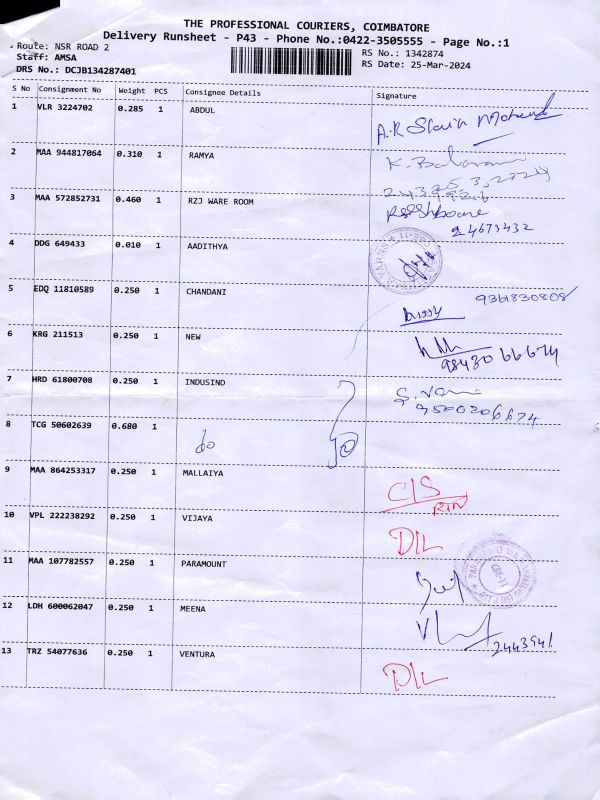 THE PROFESSIONAL COURIERS, COIMBATORE
Delivery Runsheet - P43 - Phone No.:0422-3505555 - Page No.:1
Route: NSR ROAD 2
Staff: AMSA
DRS No.: DCJB134287401
RS No.: 1342874
RS Date: 25-Mar-2024
S No Consignment No Weight PCS Consignee Details Signature
1 VLR 3224702 0.285 1 ABDUL
2 MAA 944817064 0.310 1 RAMYA
3 MAA 572852731 0.460 1 RZJ WARE ROOM
24673432
4 DDG 649433 0.010 1 AADITHYA
5 EDQ 11810589 0.250 1 CHANDANI 9361830808
6 KRG 211513 0.250 1 NEW
9843066674
7 HRD 61800708 0.250 1 INDUSIND
9500206674
8 TCG 50602639 0.680 1
do
9 MAA 864253317 0.250 1 MALLAIYA
CIS
RTN
10 VPL 222238292 0.250 1 VIJAYA D/L
11 MAA 107782557 0.250 1 PARAMOUNT
12 LDH 600062047 0.250 1 MEENA
2443941
13 TRZ 54077636 0.250 1 VENTURA
D/L